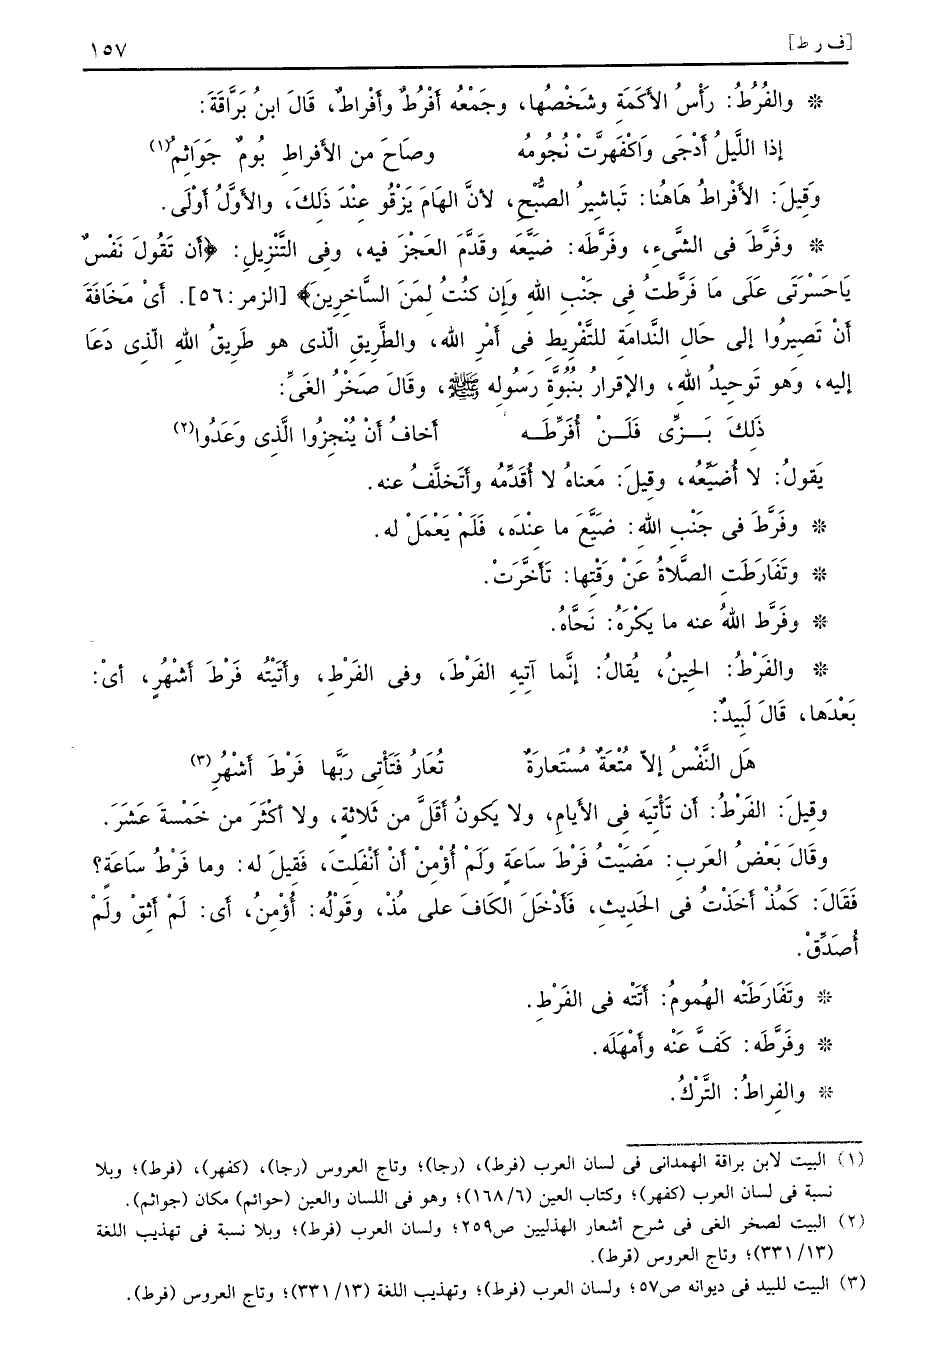 [ف ر ط] ١٥٧
❊ والفُرُطُ: رَأْسُ الأَكَمَةِ وشَخْصُها، وجَمْعُه أَفْرُطٌ وأَفْراطٌ، قَالَ ابنُ بَرَّاقَةَ:
إذا اللَّيلُ أَدْجَى وَاكْفَهرَّتْ نُجُومُه وصَاحَ من الأفراطِ بُومٌ جَوَاثِمُ(١)
وَقِيلَ: الأَفْراطُ هَاهُنا: تَباشيرُ الصُّبْحِ، لأنَّ الهَامَ يَزْقُو عِنْدَ ذَلِكَ، والأوَّلُ أَوْلَى.
❊ وفَرَّطَ فى الشَّىءِ، وفَرَّطَه: ضَيَّعَه وقَدَّمَ العَجْزَ فيه، وفى التَّنْزِيلِ: ﴿أَن تَقُولَ نَفْسٌ
يَاحَسْرَتَى عَلَى مَا فَرَّطتُ فِى جَنْبِ اللهِ وَإِن كُنتُ لَمِنَ السَّاخِرِينَ﴾ [الزمر: ٥٦]. أىْ مَخَافَةَ
أَنْ تَصِيرُوا إلى حَالِ النَّدامَةِ للتَّفْرِيطِ فى أَمْرِ اللهِ، والطَّرِيقِ الَّذى هو طَرِيقُ اللهِ الَّذى دَعَا
إليه، وَهو تَوحِيدُ اللهِ، والإقرارُ بنُبُوَّةِ رَسُولِه ﷺ، وقَالَ صَخْرُ الغَىِّ:
ذَلِكَ بَـــزِّى فَلَــنْ أُفَرِّطَــه أَخافُ أَنْ يُنْجِزُوا الَّذِى وَعَدُوا(٢)
يَقولُ: لا أُضَيِّعُه، وقِيلَ: مَعناهُ لا أُقَدِّمُه وأَتَخلَّفُ عنه.
❊ وفَرَّطَ فى جَنْبِ اللهِ: ضَيَّعَ ما عِنْدَه، فَلَمْ يَعْمَلْ له.
❊ وتَفَارَطَتِ الصَّلاةُ عَنْ وَقْتِها: تَأَخَّرَتْ.
❊ وفَرَّط اللهُ عنه ما يَكْرَهُ: نَحَّاهُ.
❊ والفَرْطُ: الحِينُ، يُقالُ: إنَّما آتِيهِ الفَرْطَ، وفى الفَرْطِ، وأَتَيْتُه فَرْطَ أَشْهُرٍ، أىْ:
بَعْدَها، قَالَ لَبِيدٌ:
هَلِ النَّفْسُ إلاّ مُتْعَةٌ مُسْتَعارَةٌ تُعَارُ فَتَأْتِى رَبَّها فَرْطَ أَشْهُرِ(٣)
وقِيلَ: الفَرْطُ: أن تَأْتيَه فى الأيامِ، ولا يَكونُ أقَلَّ من ثَلاثةٍ، ولا أكْثَرَ من خَمْسةَ عَشَرَ.
وقَالَ بَعْضُ العَربِ: مَضَيْتُ فَرْطَ سَاعَةٍ وَلَمْ أُؤمِنْ أنْ أَنْفَلتَ، فَقِيلَ له: وما فَرْطُ سَاعَةٍ؟
فَقَالَ: كَمُذْ أَخَذْتُ فى الحَدِيثِ، فَأَدْخَلَ الكَافَ على مُذْ، وقَوْلُه: أُؤمِنُ، أى: لَمْ أَثِقْ ولَمْ
أُصَدِّقْ.
❊ وتَفَارَطَتْه الهُمومُ: أتَتْه فى الفَرْطِ.
❊ وفَرَّطَه: كَفَّ عَنْه وأَمْهَلَه.
❊ والفِراطُ: التَّرْكُ.
(١) البيت لابن براقة الهمدانى فى لسان العرب (فرط)، (رجا)؛ وتاج العروس (رجا)، (كفهر)، (فرط)؛ وبلا
نسبة فى لسان العرب (كفهر)؛ وكتاب العين (١٦٨/٦)؛ وهو فى اللسان والعين (حوائم) مكان (جواثم).
(٢) البيت لصخر الغى فى شرح أشعار الهذليين ص٢٥٩؛ ولسان العرب (فرط)؛ وبلا نسبة فى تهذيب اللغة
(٣٣١/١٣)؛ وتاج العروس (قرط).
(٣) البيت للبيد فى ديوانه ص٥٧؛ ولسان العرب (فرط)؛ وتهذيب اللغة (٣٣١/١٣)؛ وتاج العروس (فرط).